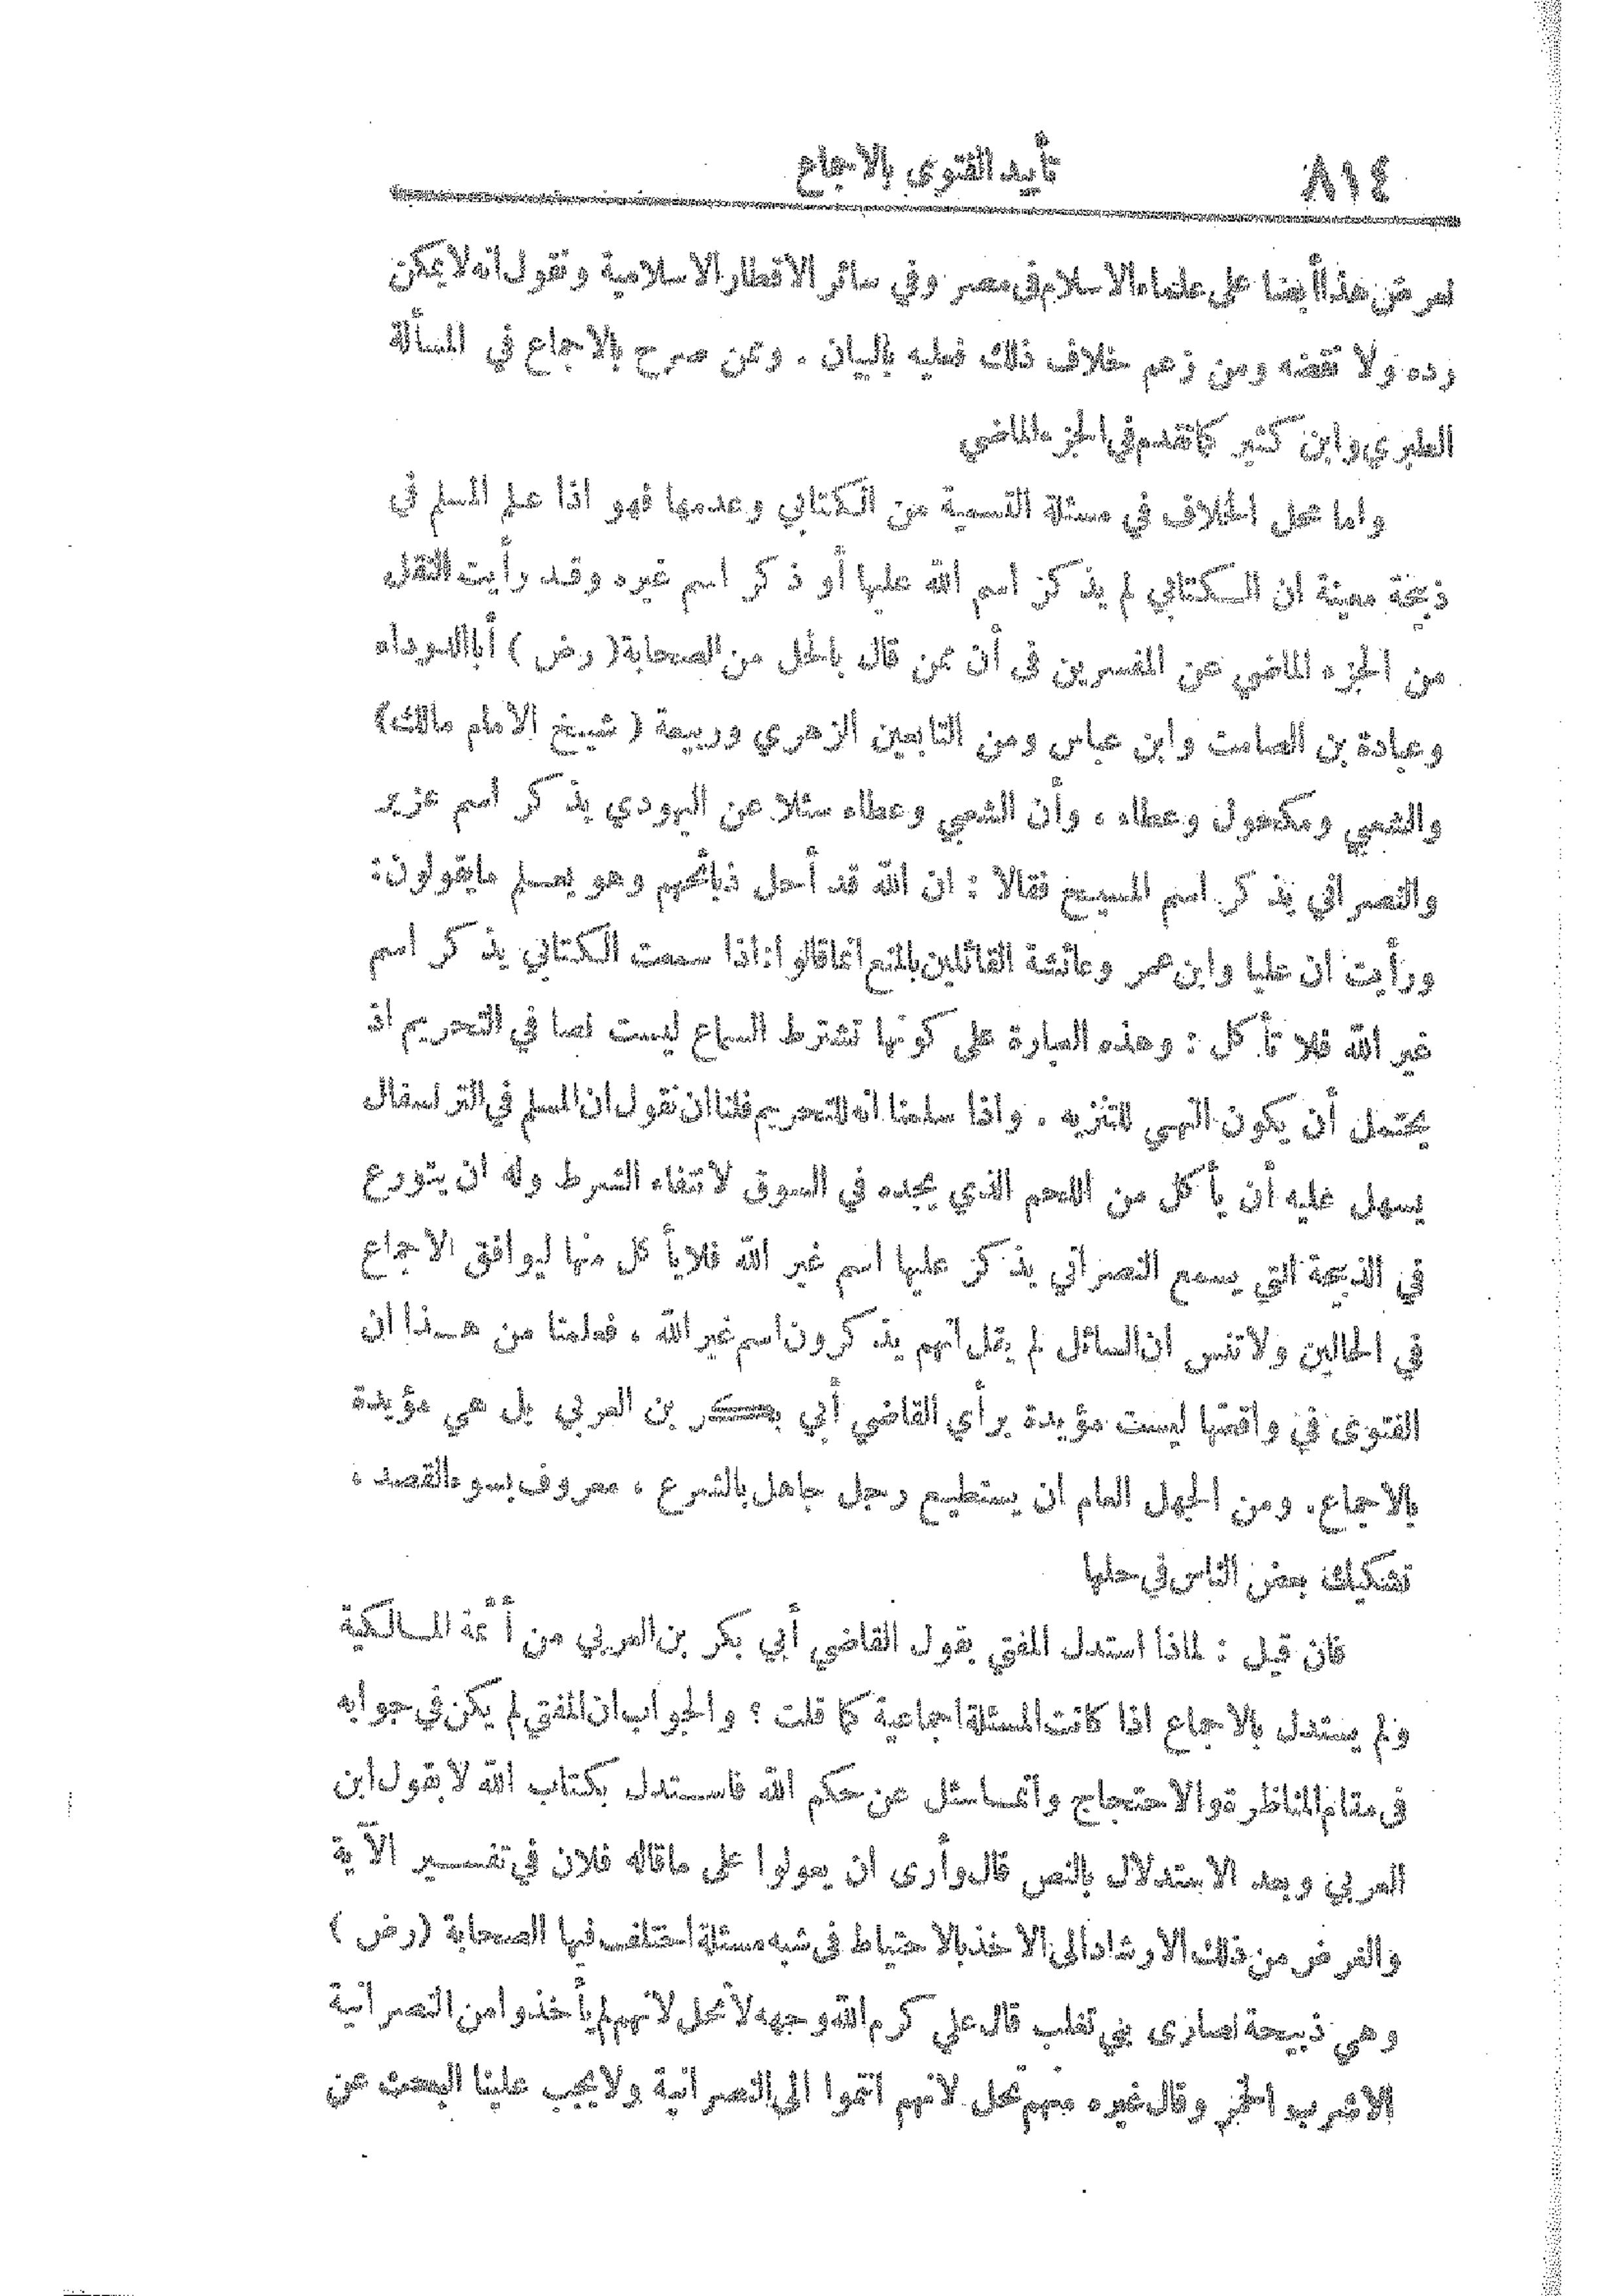 ٨١٤ تأييد الفتوى بالاجماع
نعرض هذا أيضا على علماء الاسلام في مصر وفي سائر الاقطار الاسلامية ونقول انه لا يمكن
رده ولا نقضه ومن زعم خلاف ذلك فعليه بالبيان . وممن صرح بالاجماع في المسألة
الطبري وابن كثير كما تقدم في الجزء الماضي
واما محل الخلاف في مسئلة التسمية من الكتابي وعدمها فهو اذا علم المسلم في
ذبيحة معينة ان الكتابي لم يذكر اسم الله عليها أو ذكر اسم غيره وقد رأيت النقل
من الجزء الماضي عن المفسرين في أن ممن قال بالحل من الصحابة ( رض ) أبا الدرداء
وعبادة بن الصامت وابن عباس ومن التابعين الزهري وربيعة ( شيخ الامام مالك )
والشعبي ومكحول وعطاء ، وأن الشعبي وعطاء سئلا عن اليهودي يذكر اسم عزير
والنصراني يذكر اسم المسيح فقالا : ان الله قد أحل ذبائحهم وهو يعلم ما يقولون :
ورأيت ان عليا وابن عمر وعائشة القائلين بالمنع انما قالوا : اذا سمعت الكتابي يذكر اسم
غير الله فلا تأكل : وهذه العبارة على كونها تشترط السماع ليست نصا في التحريم اذ
يحتمل أن يكون النهي للتنزيه . واذا سلمنا انه للتحريم فلنا ان نقول ان المسلم في الترنسفال
يسهل عليه أن يأكل من اللحم الذي يجده في السوق لانتفاء الشرط وله ان يتورع
في الذبيحة التي يسمع النصراني يذكر عليها اسم غير الله فلا يأكل منها ليوافق الاجماع
في الحالين ولا تنس ان السائل لم يقل انهم يذكرون اسم غير الله ، فعلمنا من هذا ان
الفتوى في واقعتها ليست مؤيدة برأي القاضي أبي بكر بن العربي بل هي مؤيدة
بالاجماع . ومن الجهل العام ان يستطيع رجل جاهل بالشرع ، معروف بسوء القصد ،
تشكيك بعض الناس في حلها
فان قيل : لماذا استدل المفتي بقول القاضي أبي بكر بن العربي من أئمة المالكية
ولم يستدل بالاجماع اذا كانت المسئلة اجماعية كما قلت ؟ والجواب ان المفتي لم يكن في جوابه
في مقام المناظرة والاحتجاج وانما سئل عن حكم الله فاستدل بكتاب الله لا بقول ابن
العربي وبعد الاستدلال بالنص قال وأرى ان يعولوا على ما قاله فلان في تفسير الآية
والغرض من ذلك الارشاد الى الاخذ بالاحتياط في شبه مسئلة اختلف فيها الصحابة ( رض )
وهي ذبيحة نصارى بني تغلب قال علي كرم الله وجهه لا تحل لانهم لم يأخذوا من النصرانية
الا شرب الخمر وقال غيره منهم تحل لانهم انتموا الى النصرانية ولا يجب علينا البحث عن